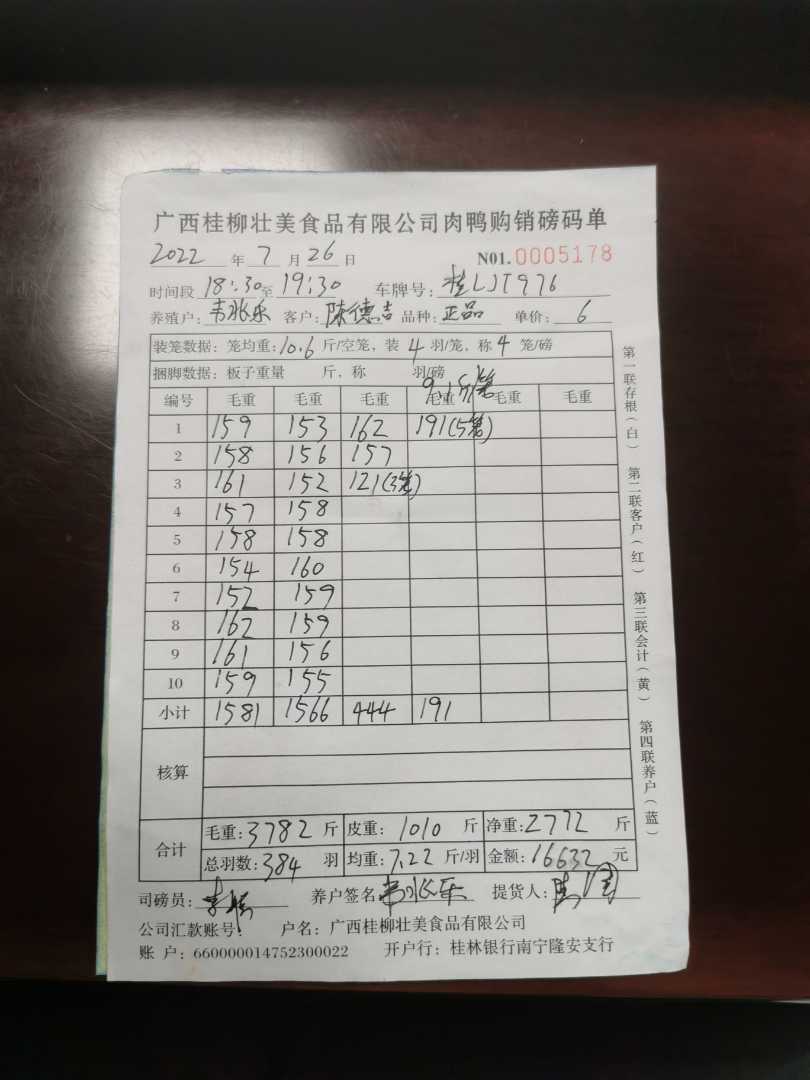 广西桂柳壮美食品有限公司肉鸭购销磅码单
2022 年 7 月 26 日 N01.0005178
时间段 18:30 至 19:30 车牌号: 桂LJT976
养殖户: 韦兆乐 客户: 陈德吉 品种: 正品 单价: 6
装笼数据: 笼均重: 10.6 斤/空笼, 装 4 羽/笼, 称 4 笼/磅
捆脚数据: 板子重量 斤, 称 羽/磅
9.1斤/笼
编号 毛重 毛重 毛重 毛重 毛重 毛重
1 159 153 162 191(5笼)
2 158 156 157
3 161 152 121(3笼)
4 157 158
5 158 158
6 154 160
7 152 159
8 162 159
9 161 156
10 159 155
小计 1581 1566 444 191
核算
合计 毛重: 3782 斤 皮重: 1010 斤 净重: 2772 斤
总羽数: 384 羽 均重: 7.22 斤/羽 金额: 16632 元
司磅员: 养户签名 韦兆乐 提货人:
公司汇款账号: 户名: 广西桂柳壮美食品有限公司
账 户: 660000014752300022 开户行: 桂林银行南宁隆安支行
第一联存根(白) 第二联客户(红) 第三联会计(黄) 第四联养户(蓝)